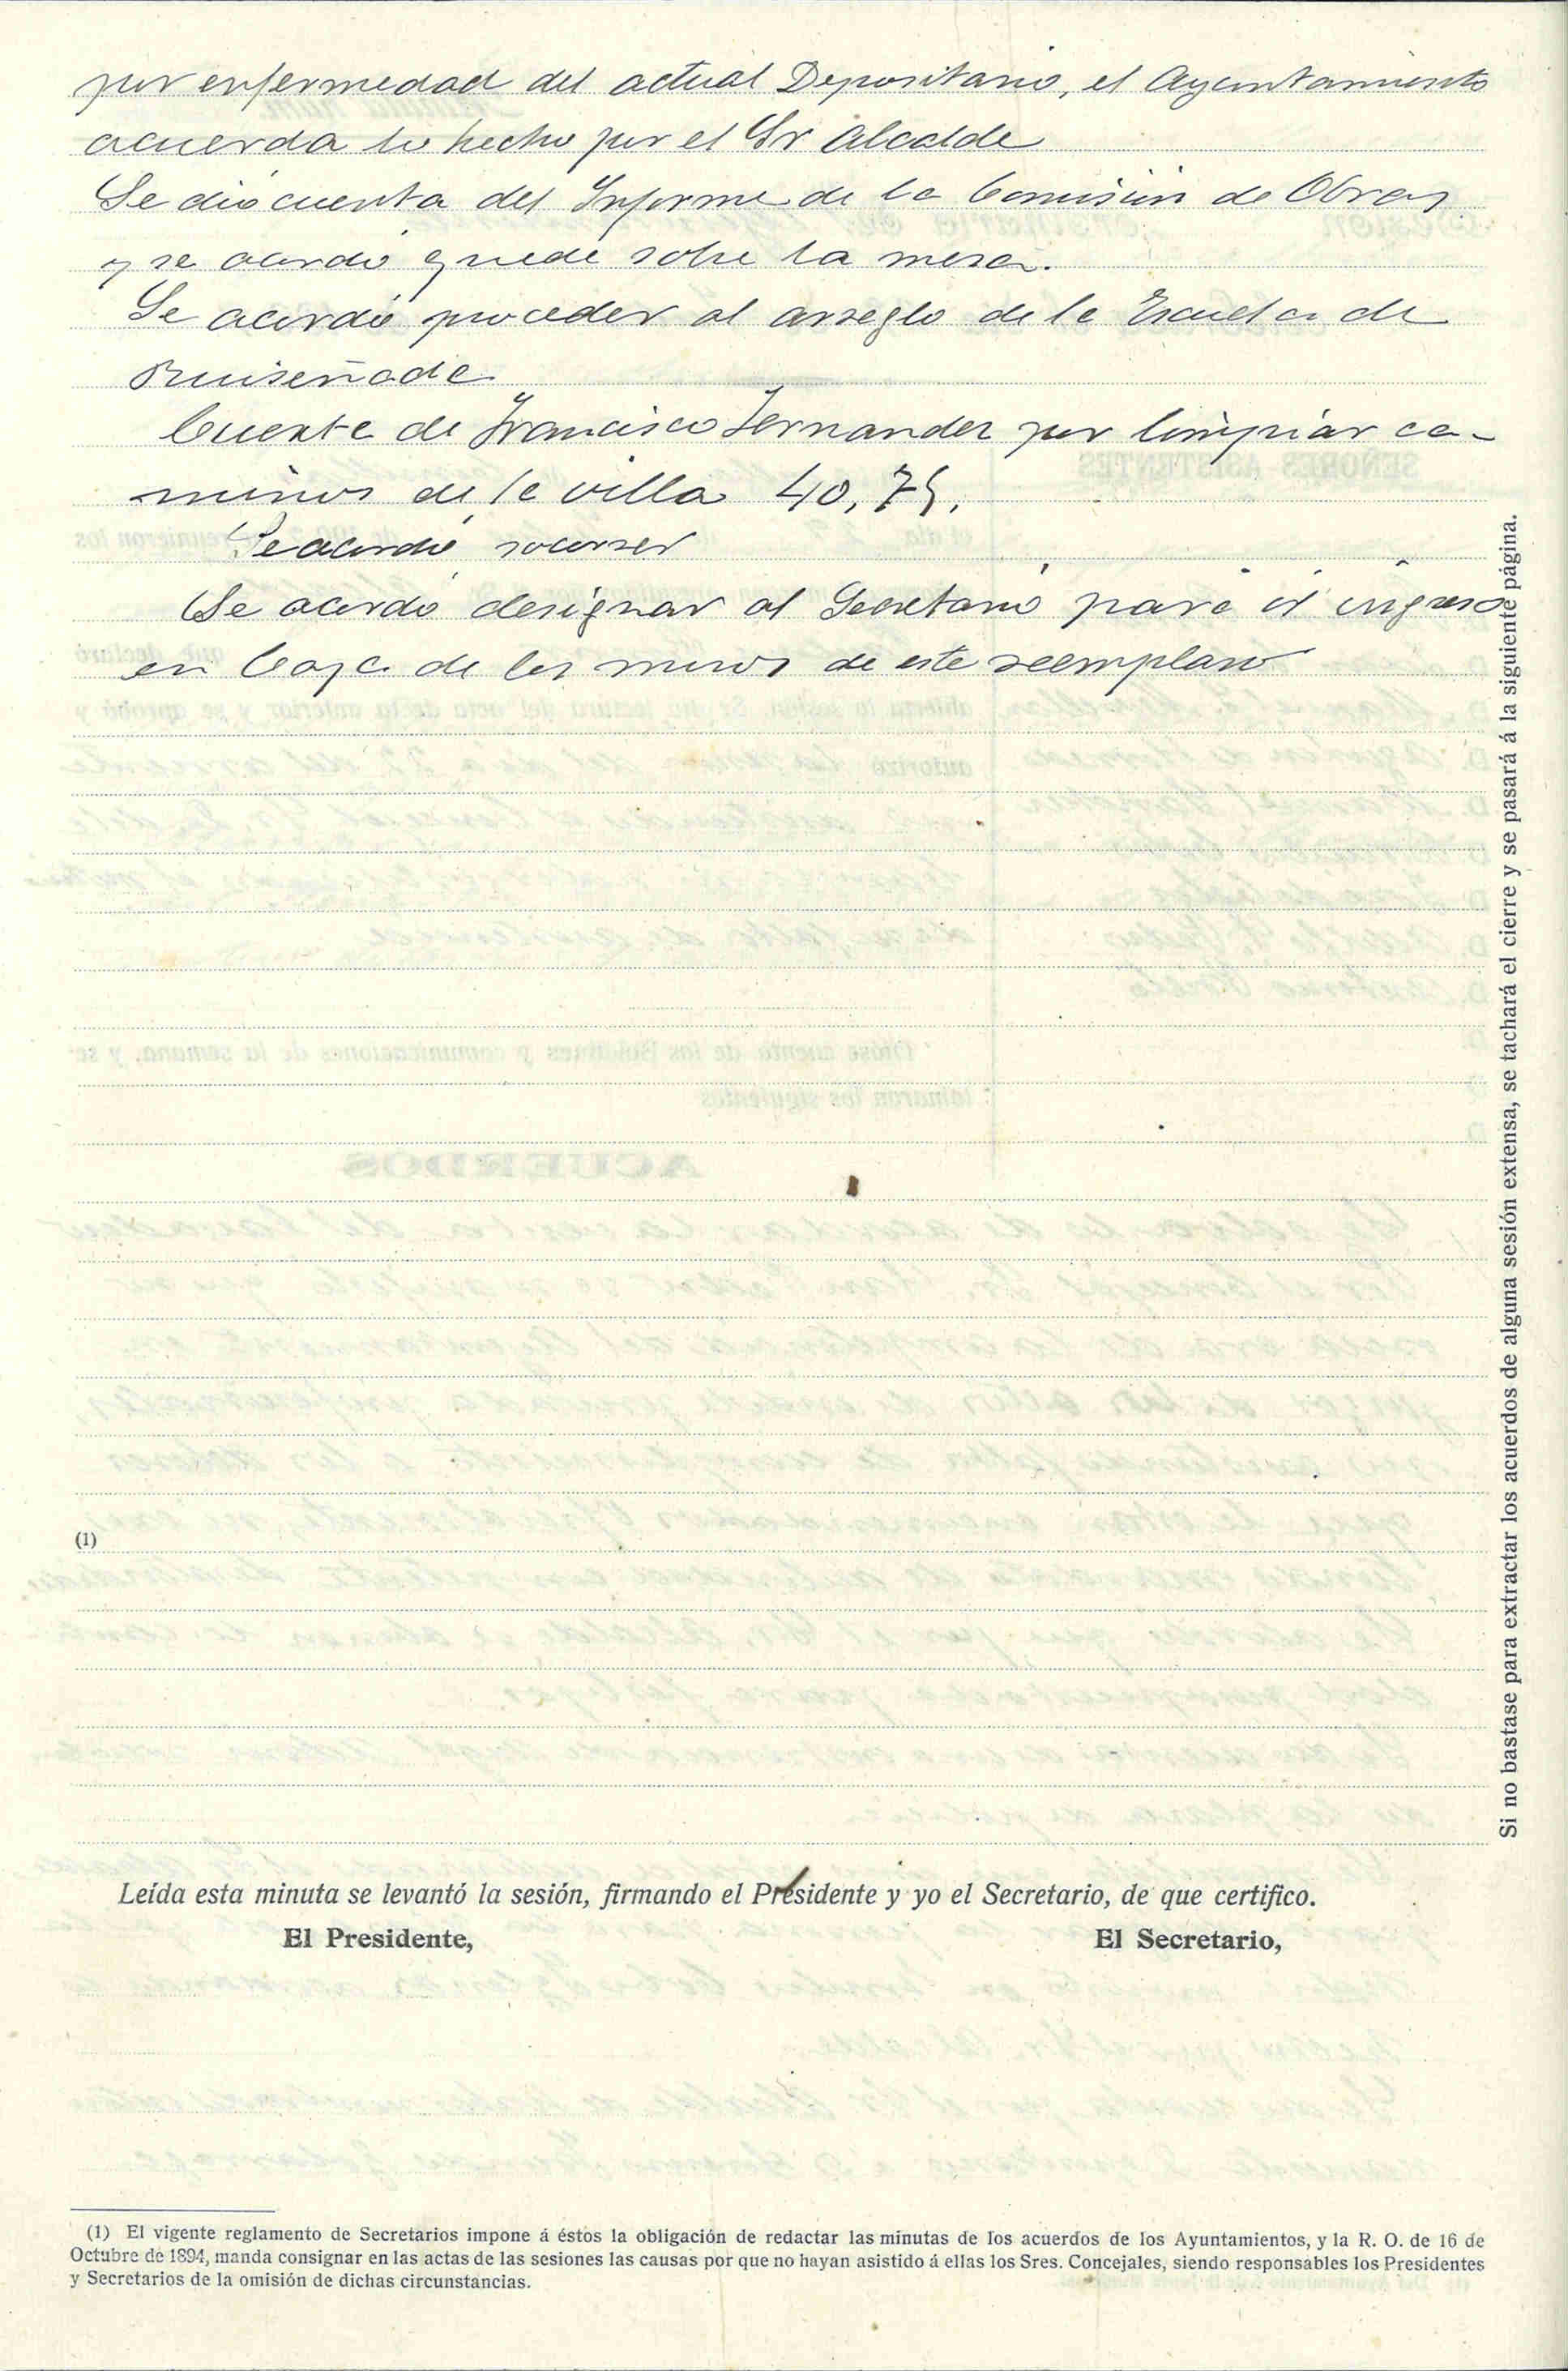 por enfermedad del actual Depositario, el Ayuntamiento
acuerda lo hecho por el Sr Alcalde
Se dio cuenta del Informe de la Comisión de Obras
y se acordó quede sobre la mesa.
Se acordó proceder al arreglo de la Escuela de
Ruiseñada
Cuenta de Francisco Fernandez por limpiar ca-
minos de la villa 40,75.
Se acordó socorrer
Se acordó designar al Secretario para el ingreso
en Caja de los mozos de este reemplazo
(1)
Leída esta minuta se levantó la sesión, firmando el Presidente y yo el Secretario, de que certifico.
El Presidente,
El Secretario,
(1) El vigente reglamento de Secretarios impone á éstos la obligación de redactar las minutas de los acuerdos de los Ayuntamientos, y la R. O. de 16 de
Octubre de 1894, manda consignar en las actas de las sesiones las causas por que no hayan asistido á ellas los Sres. Concejales, siendo responsables los Presidentes
y Secretarios de la omisión de dichas circunstancias.
Si no bastase para extractar los acuerdos de alguna sesión extensa, se tachará el cierre y se pasará á la siguiente página.